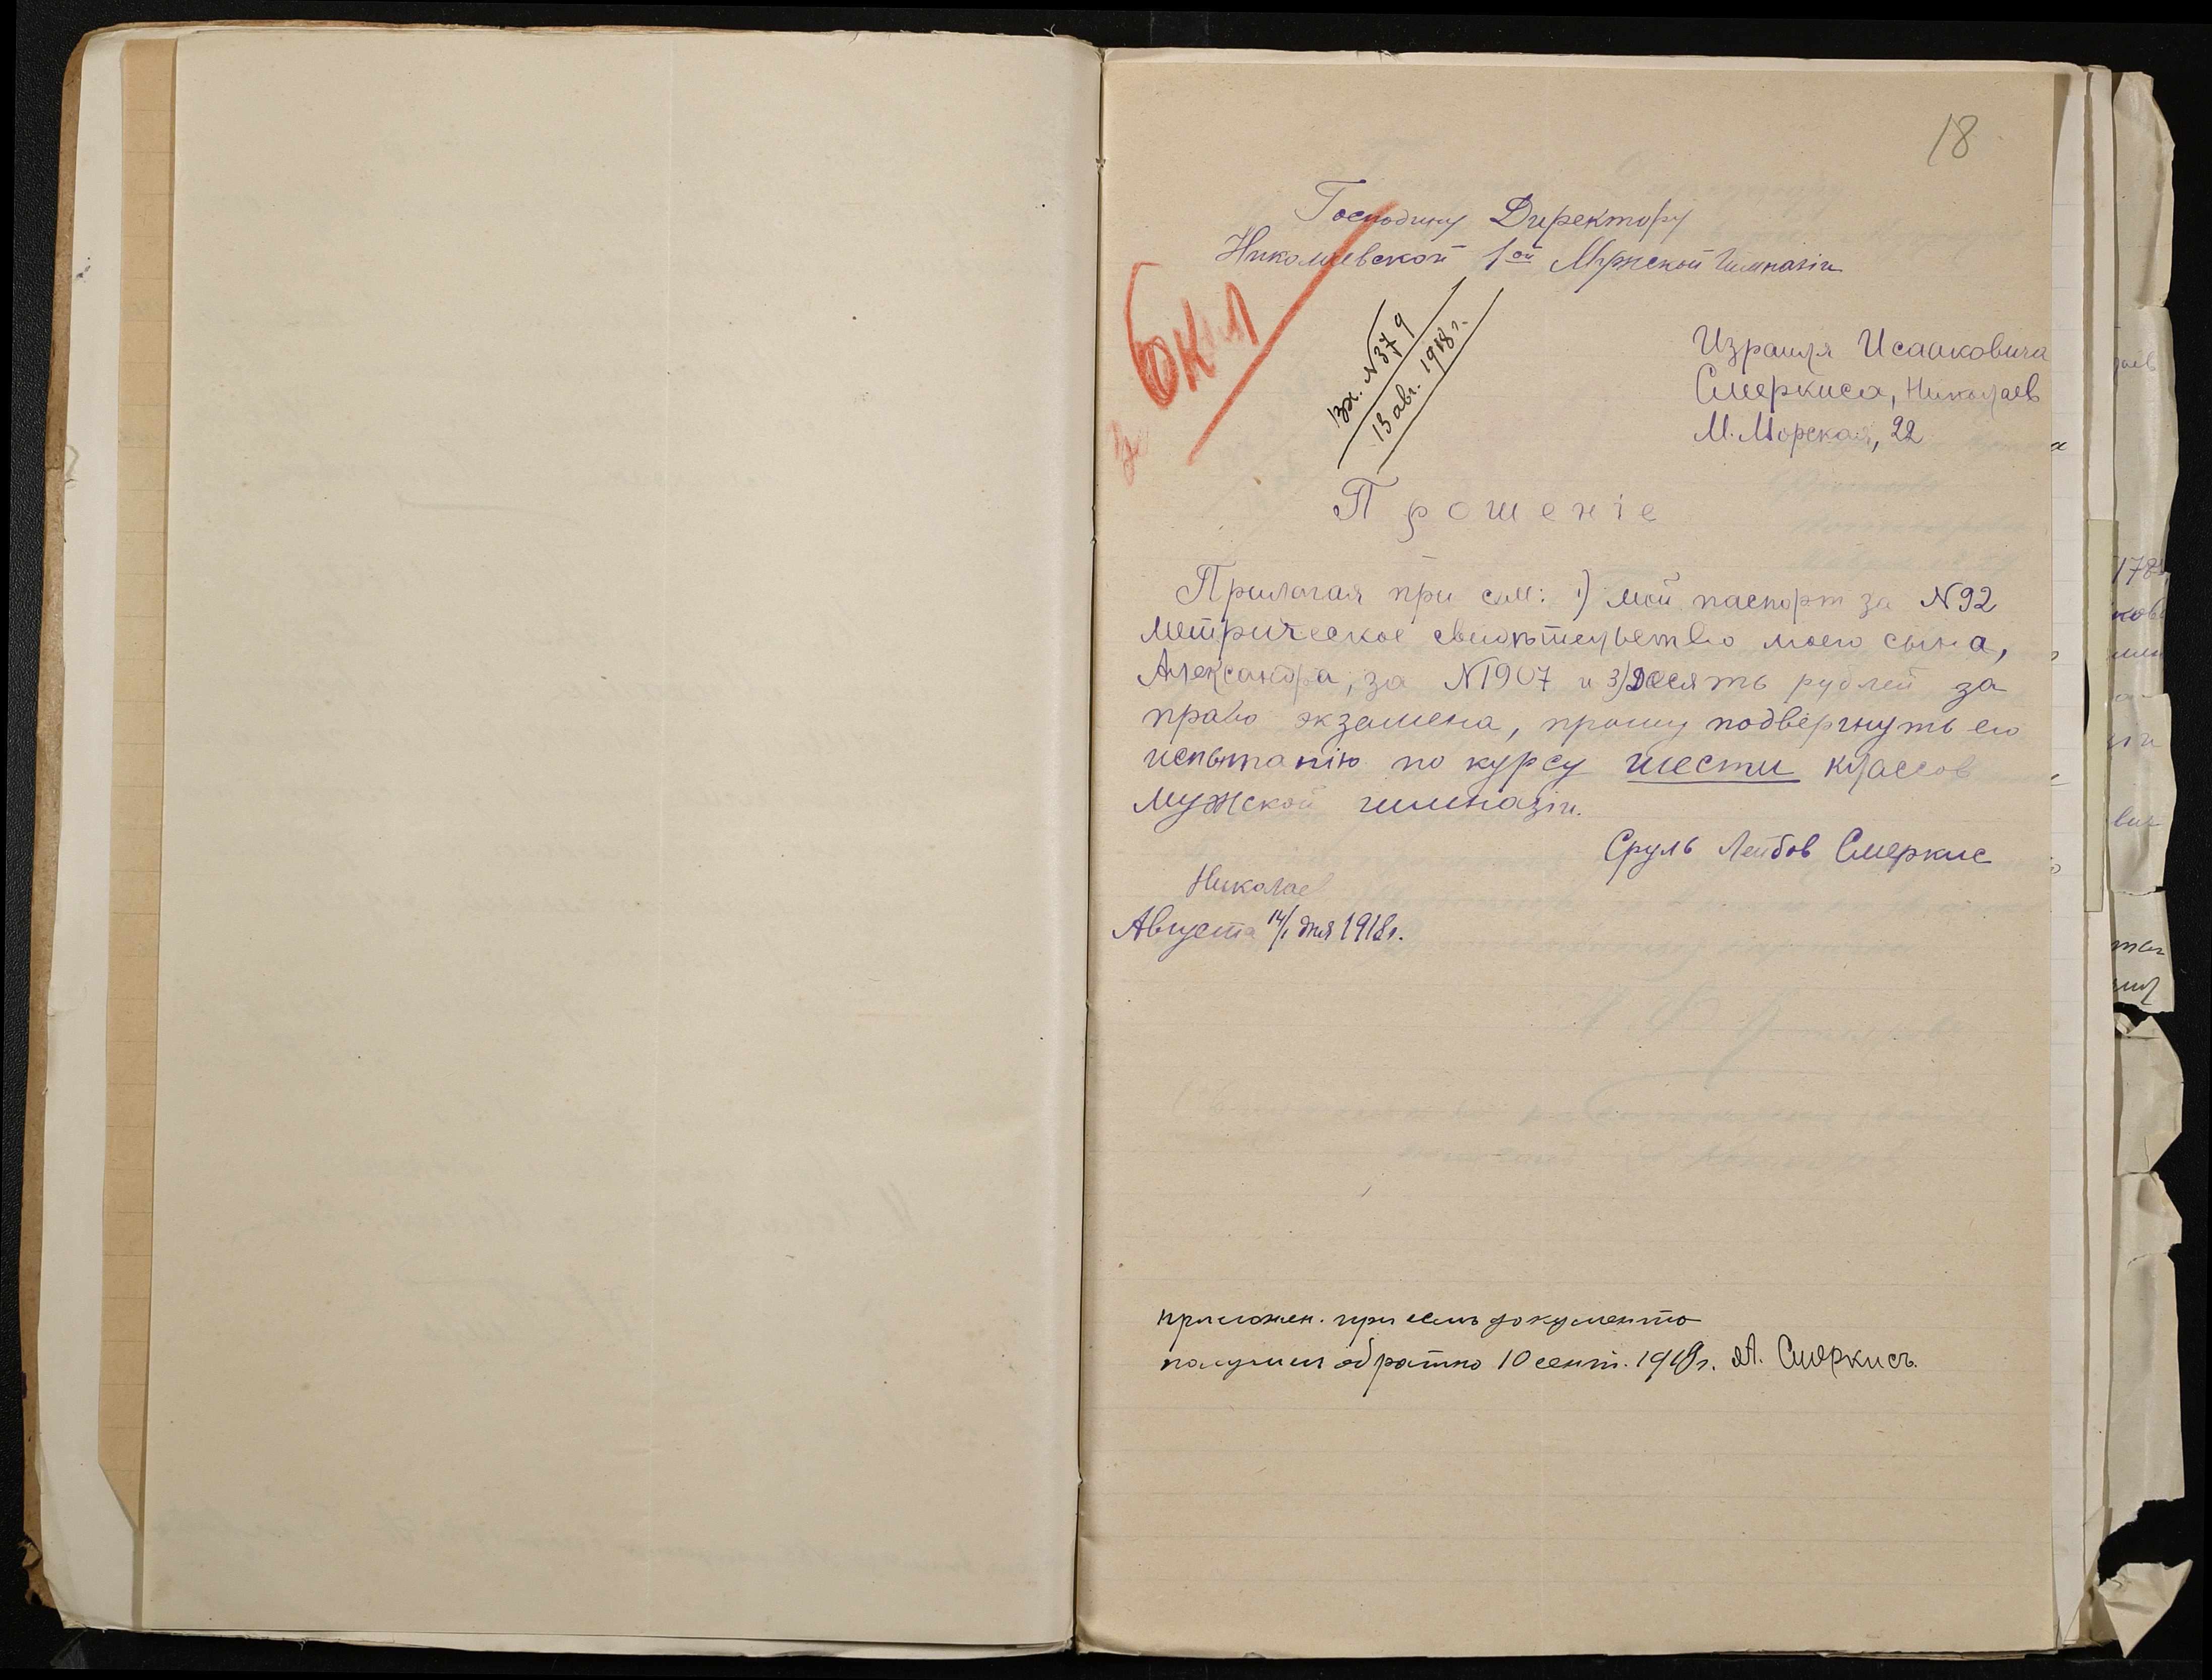 18
Господину Директору
Николаевской 1ой Мужской Гимназіи
6 кл
вх. N 379
13 авг. 1918 г.
Израиля Исааковича
Смеркиса, Николаев
М. Морская, 22
Прошеніе
Прилагая при сем: 1) мой паспорт за N 92
метрическое свидѣтельство моего сына,
Александра, за N 1907 и 3) Десять рублей за
право экзамена, прошу подвергнуть его
испытанію по курсу шести классов
мужской гимназіи.
Сруль Лейбов Смеркис
Николаев
Августа 14/1 дня 1918 г.
приложен. при семъ документы
получил обратно 10 сент. 1918 г. А. Смеркисъ.